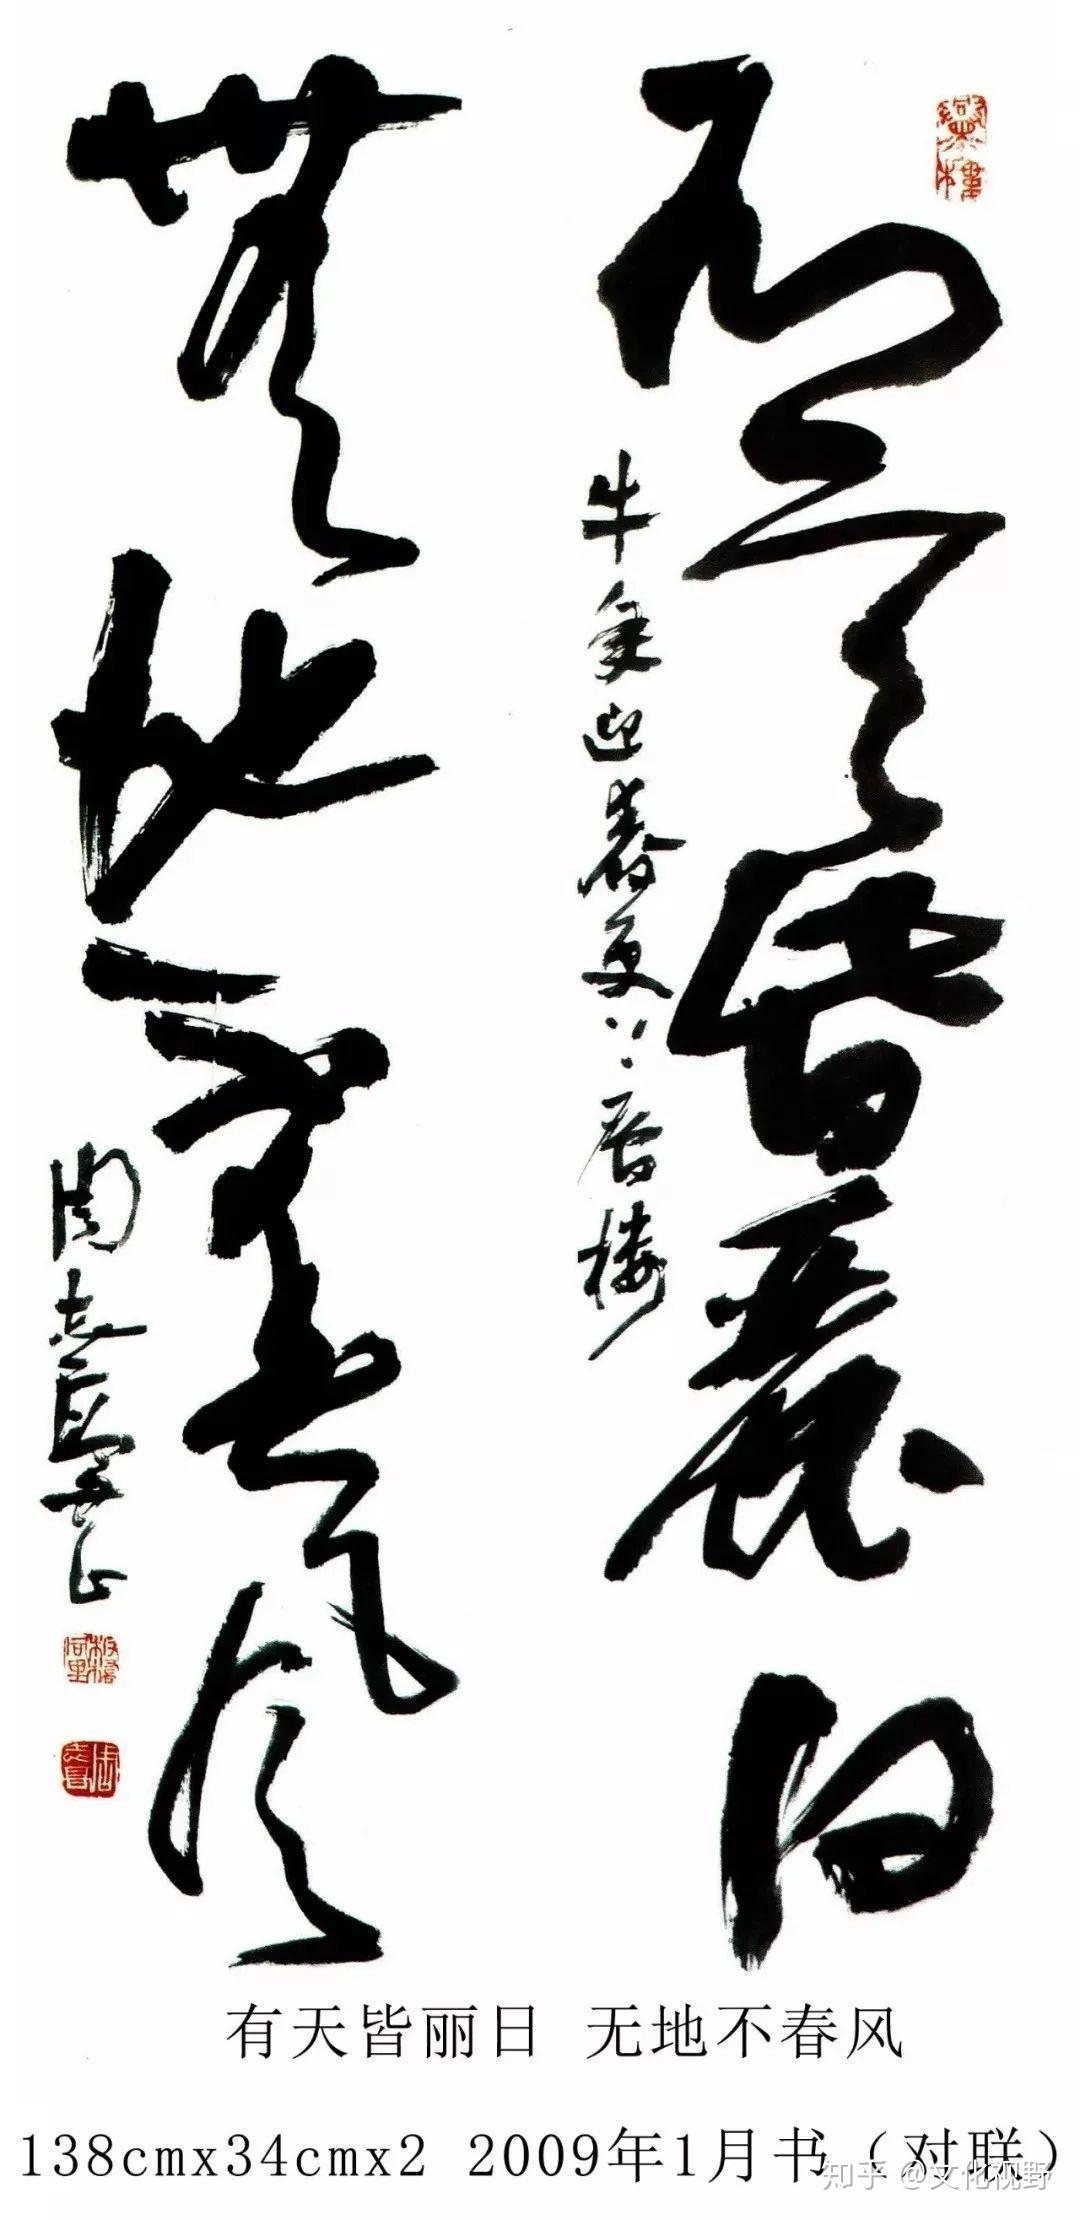 有天皆麗日
牛年迎春更
楼
無地不春風
周志高
有天皆丽日 无地不春风
138cmx34cmx2 2009年1月书（对联）
知乎 @文化视野